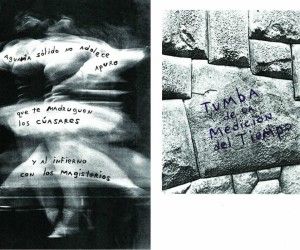 sólido no adolece
apuro
que te madruguen
los cuásares
y al infierno
con los magistorios
TUMBA
de la
Medición
del Tiempo